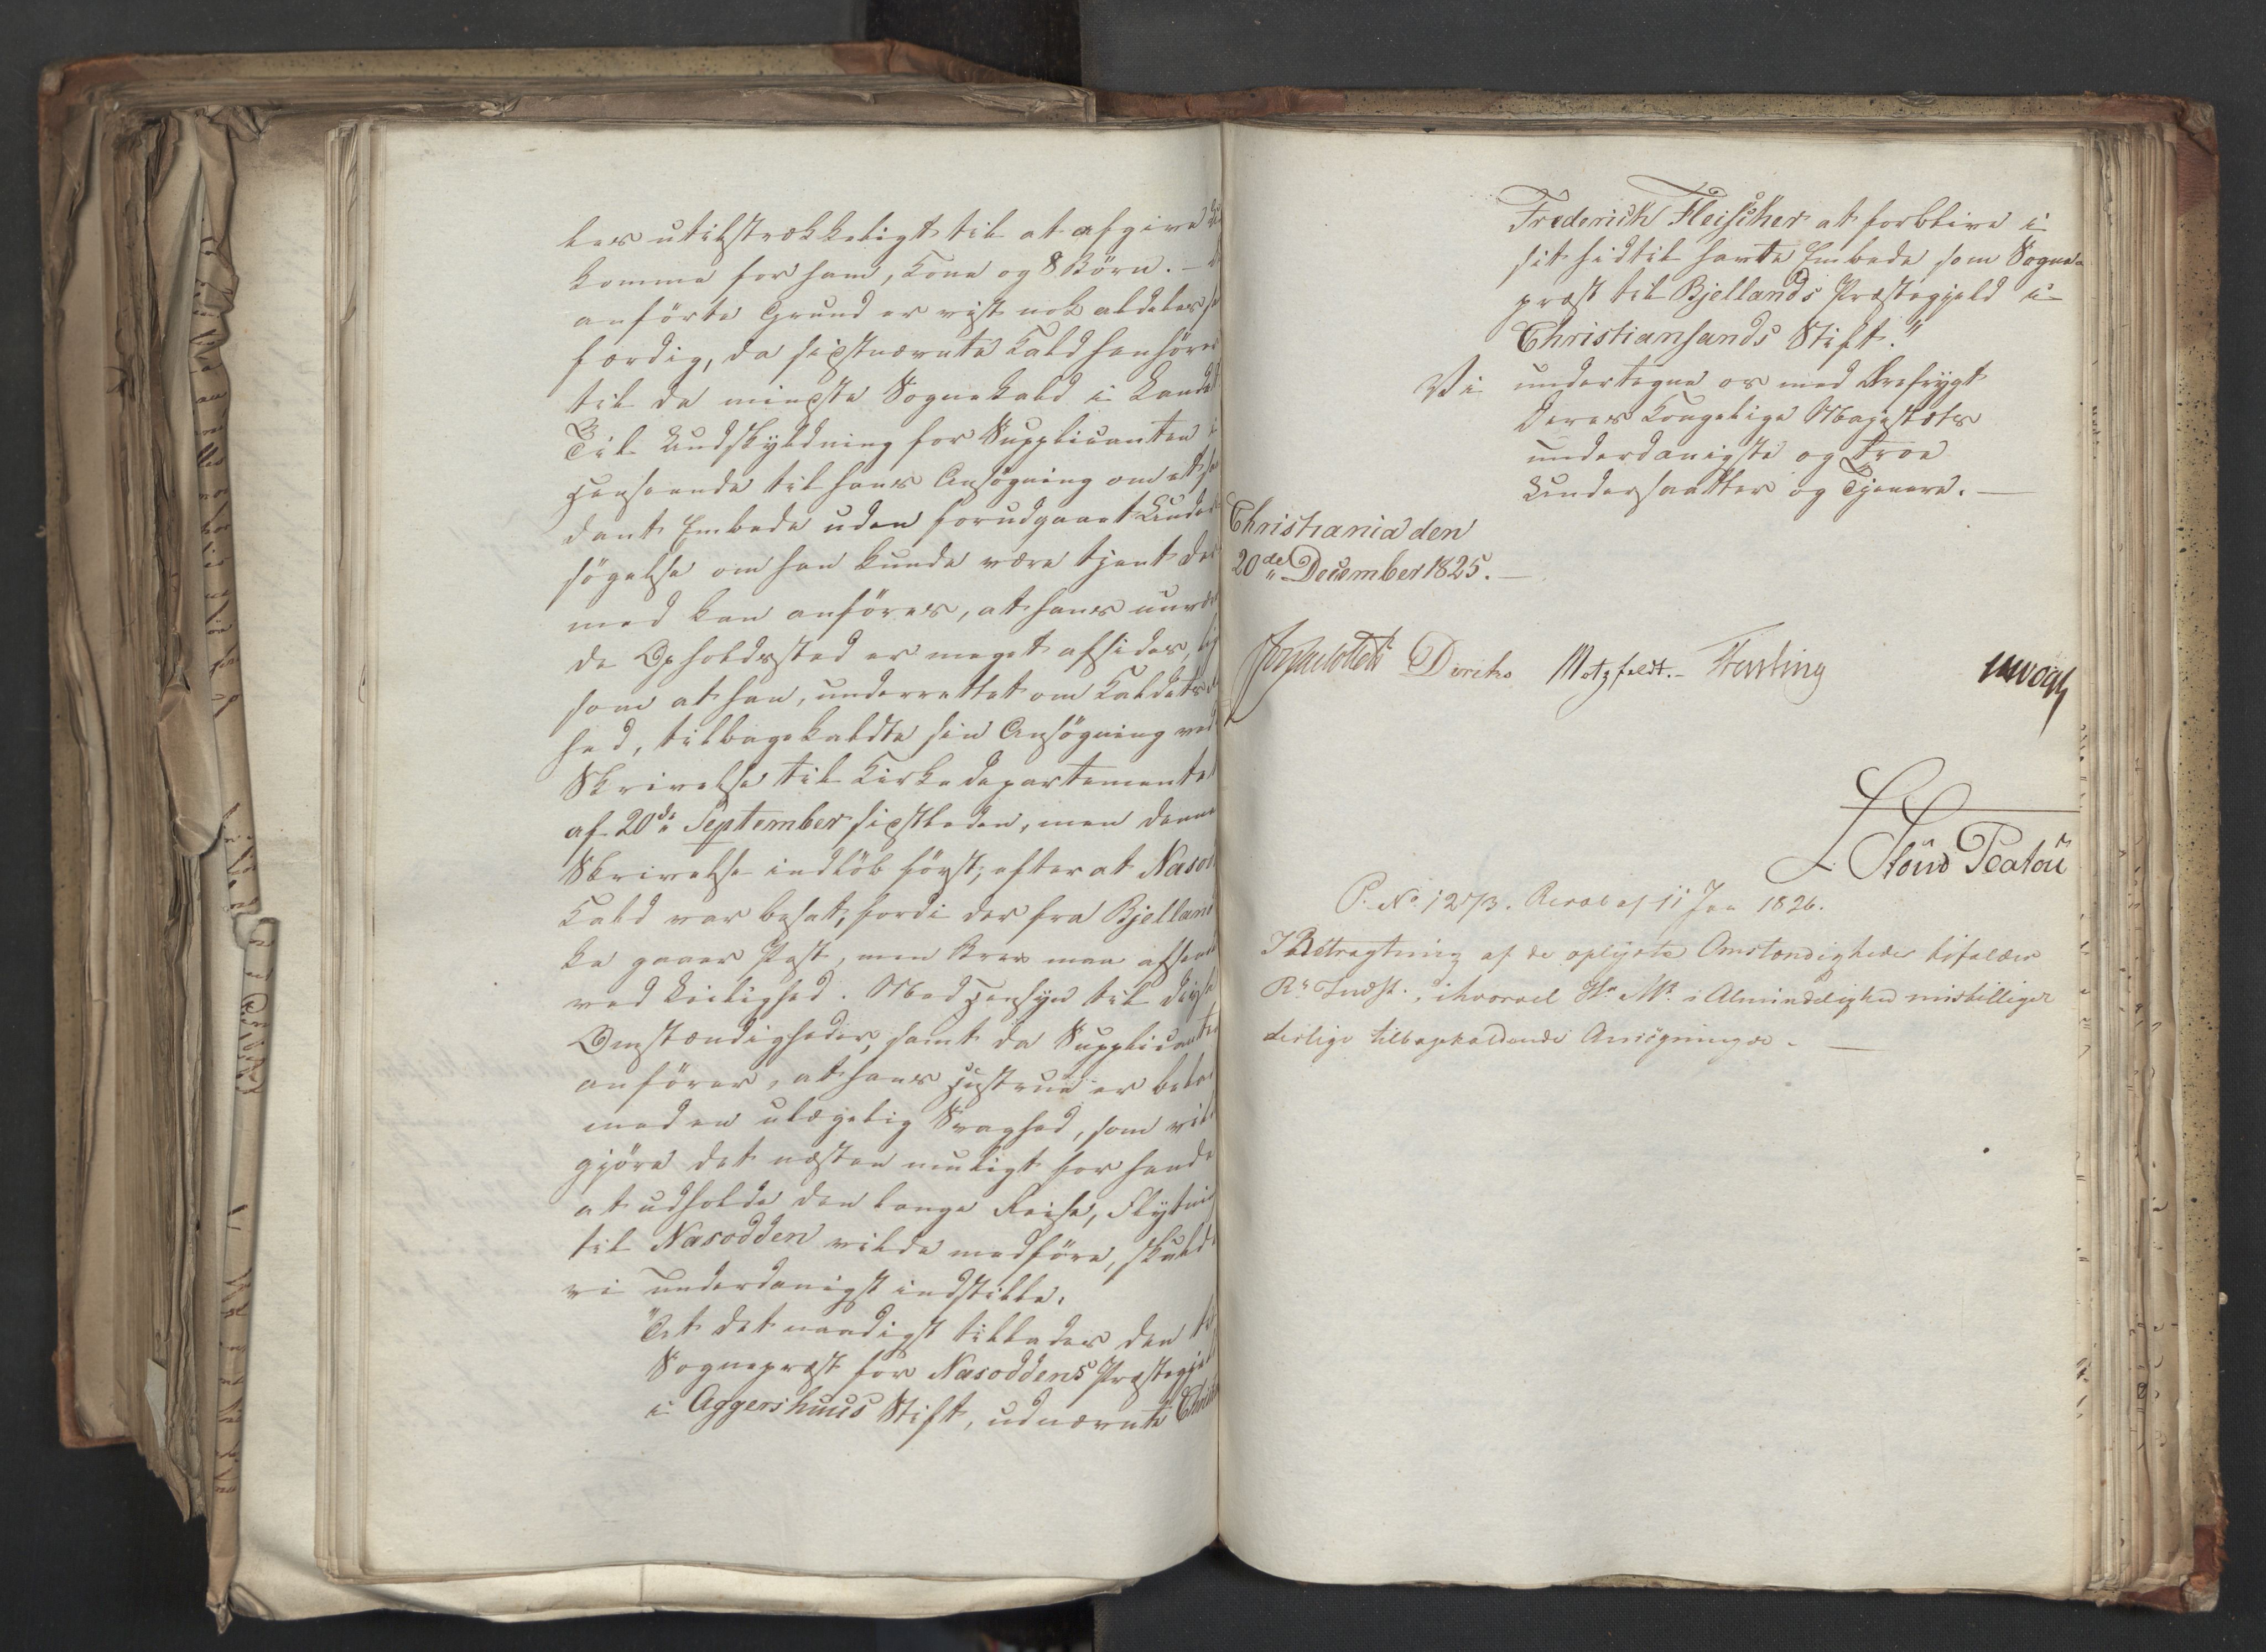 les utilstrækkeligt til at afgive Ud
komme for ham, Kone og 8 Börn. – D
anförte Grund er vist nok aldeles
færdig, da sidstnævnte Kald henhörer
til de mindste Sognekald i Landet
Til Undskyldning for Supplicanten i
Henseende til hans Ansögning om et saa
dant Embede uden forudgaaet Under
sögelse om han kunde være tjent der
med kan anföres, at hans nuvæ
de Opholdssted er meget afsides, lig
som at han, underrettet om Kaldets
hed, tilbagekaldte sin Ansögning ved
Skrivelse til Kirkedepartementet
af 20de September sidstleden, men denne
Skrivelse indlöb först, efter at Nasod
Kald var besat, fordi der fra Bjelland
ke gaaer Post, men Brev maa afsend
ved Leilighed. Med Hensyn til disse
Omstændigheder, samt da Supplicanten
anförer, at hans Hustrue er belæ
med en ulægelig Svaghed, som vil
gjöre det næsten umuligt for hende
at udholde den lange Reise, Flytning
til Nasodden vilde medföre, skulde
vi underdanigst indstille:
"At det naadigst tillades den til
Sognepræst for Nasoddens Præstegjeld
i Aggershuus Stift, udnævnte Christ
Frederich Fleischer at forblive i
sit hidtil havte Embede som Sogne-
præst til Bjellands Præstegjeld i
Christiansands Stift."
Vi undertegne os med Ærefrygt
Deres Kongelige Majestæts
underdanigste og troe
Undersaatter og Tjenere. —
Christiania den
20de December 1825. —
Diriks Motzfeldt. – Fasting
L Stoud Platou
P. No 1273. Resol af 11 Jan 1826.
I Betragtning af de oplyste Omstændigheder bifaldes
Rs Indst., ihvorvel Hs Mt i Almindelighed misbilliger
deslige tilbagekaldende Ansögninger. —